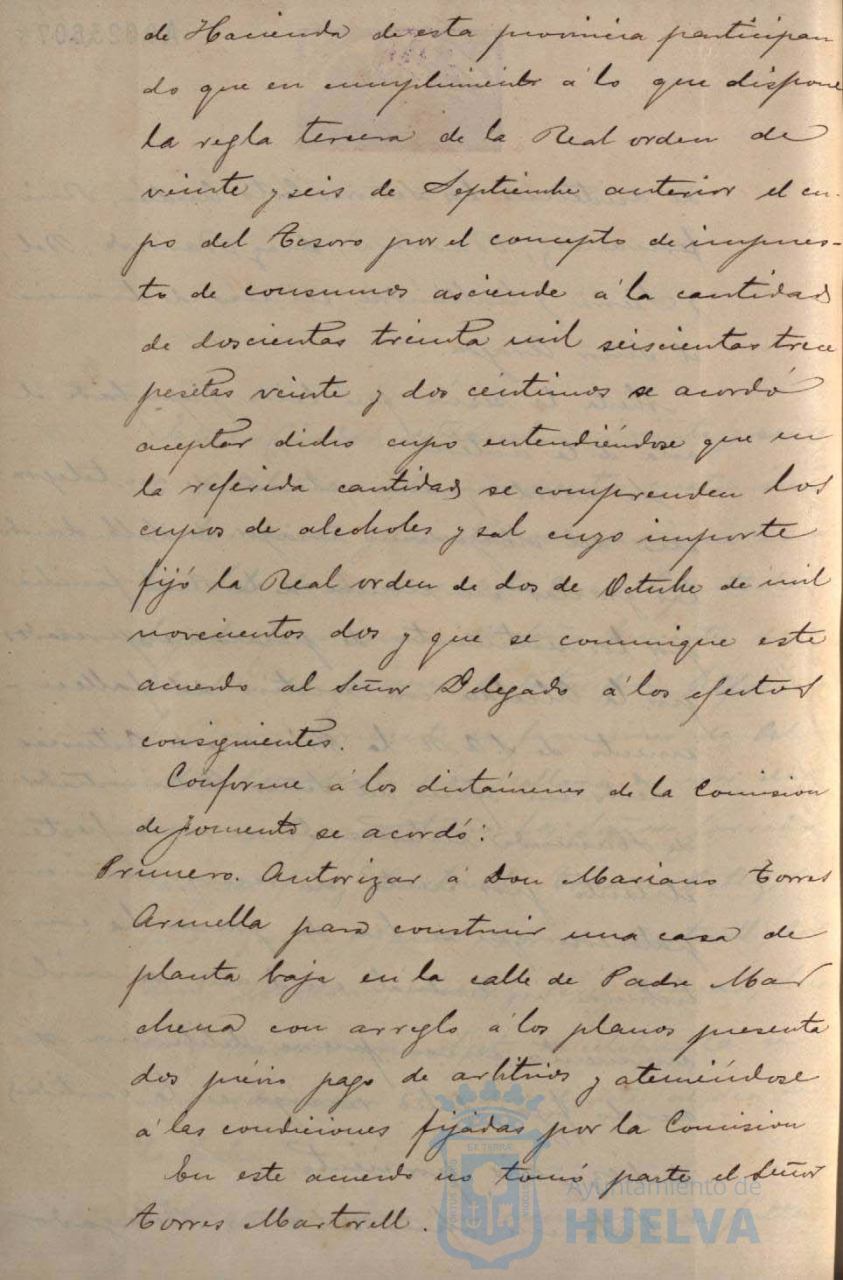 de Hacienda de esta provincia participan
do que en cumplimiento á lo que dispone
la regla tercera de la Real orden de
veinte y seis de Septiembre anterior el cu-
po del Tesoro por el concepto de impues-
to de consumos asciende á la cantidad
de doscientas treinta mil seiscientas trece
pesetas veinte y dos céntimos se acordó
aceptar dicho cupo entendiéndose que en
la referida cantidad se comprenden los
cupos de alcoholes y sal cuyo importe
fijó la Real orden de dos de Octubre de mil
novecientos dos y que se comunique este
acuerdo al Señor Delegado á los efectos
consiguientes.
Conforme á los dictámenes de la Comision
de fomento se acordó:
Primero. Autorizar á Don Mariano Torres
Armella para construir una casa de
planta baja en la calle de Padre Mar
chena con arreglo á los planos presenta
dos prévio pago de arbitrios y ateniéndose
á las condiciones fijadas por la Comision
En este acuerdo no tomó parte el Señor
Torres Martorell.
Ayuntamiento de
HUELVA